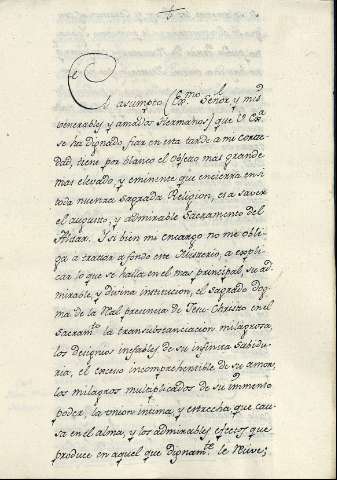 El asumpto (Exmo. Señor, y mis
venerables y amados Hermanos) que V. Exa.
se ha dignado, fiar en esta tarde a mi corte-
dad, tiene por blanco el objeto mas grande
mas elevado, y eminente que encierra en si
toda nuestra Sagrada Religion, es a saver
el augusto, y admirable Sacramento del
Altar. Y si bien mi encargo no me obli-
ga a tratar a fondo este Misterio, a explic-
car lo que se halla en el mas principal, su ad-
mirable, y divina institucion, el sagrado dog-
ma de la Real presencia de Jesu-Christo en el
Sacramto. la transubstanciacion milagrosa,
los designios inefables de su infinita Sabidu-
ria, el exceso incomprehensible de su amor,
los milagros multiplicados de su immenso
poder, la union intima, y estrecha que cau-
sa en el alma, y los admirables efectos que
produce en aquel que dignamte. le recive;